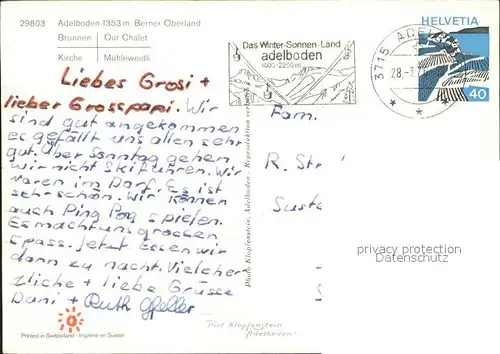 29803 Adelboden 1353 m. Berner Oberland
Brunnen Our Chalet
Kirche Mühleweidli
Das Winter-Sonnen-Land
adelboden
1400-2200 m
3715 ADELB
28.-1.
HELVETIA
40
Liebes Grosi +
lieber Grosspapi. Wir
sind gut angekommen
es gefällt uns allen sehr
gut. Über Sonntag gehen
wir nicht Skifahren. Wir
waren im Dorf. Es ist
sehr schön. Wir können
auch Ping Pog spielen.
Es macht uns grossen
Spass. Jetzt Essen wir
dann zu nacht. Viele her
zliche + liebe Grüsse
Dani + Ruth
Fam.
R. Str
Suste
S
Photo Klopfenstein, Adelboden - Reproduktion verboten
privacy protection
Datenschutz
Printed in Switzerland - Imprimé en Suisse
Thol Klopfenstein
Adelboden